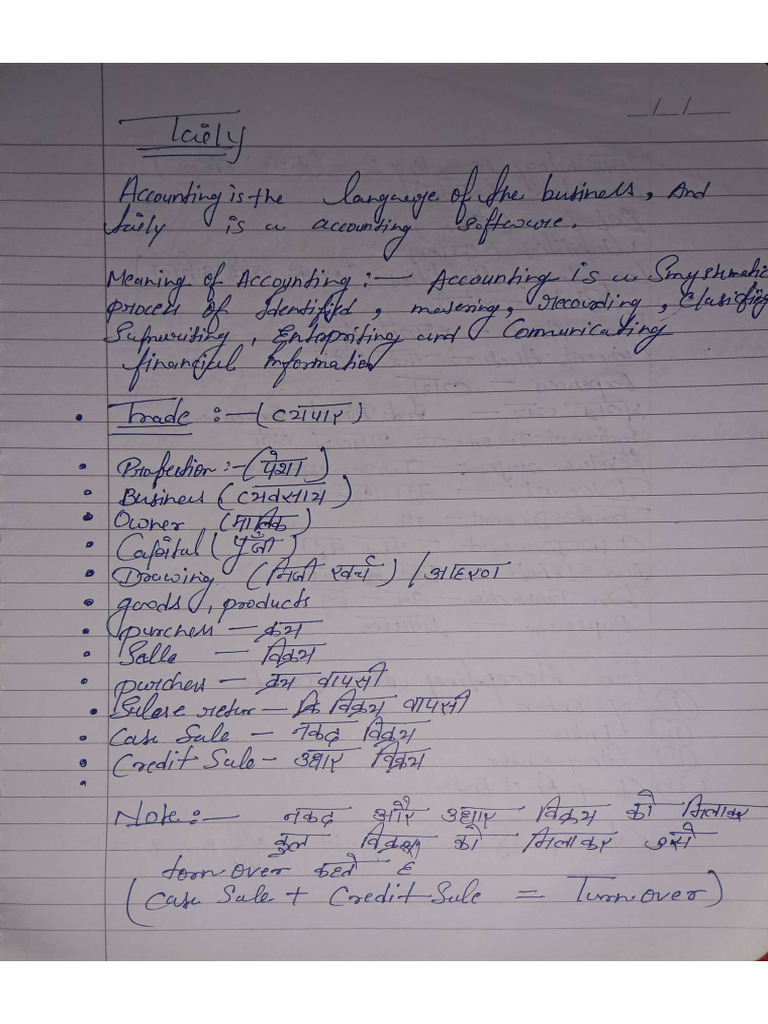 Tally
Accounting is the language of the business, And
tally is a accounting software.
Meaning of Accounting :— Accounting is a Smyshmatic
process of Identified, masering, recourding, Clasifiis
Sumurising, Entarpriting and Comunicating
financial Information
• Trade :— (व्यापार)
• Profection :- (पेशा)
• Business (व्यवसाय)
• Owner (मालिक)
• Capital (पुँजी)
• Drawing (निजी खर्च) / आहरण
• goods, products
• purchess — क्रय
• Salle — विक्रय
• purchess — क्रय वापसी
• Salese retur — विक्रय वापसी
• Case Sale — नकद विक्रय
• Credit Sale - उधार विक्रय
•
Note :— नकद और उधार विक्रय को मिलाकर
कुल विक्रय को मिलाकर उसे
torn over कहते है
(Case Sale + Credit Sale = Turnover)